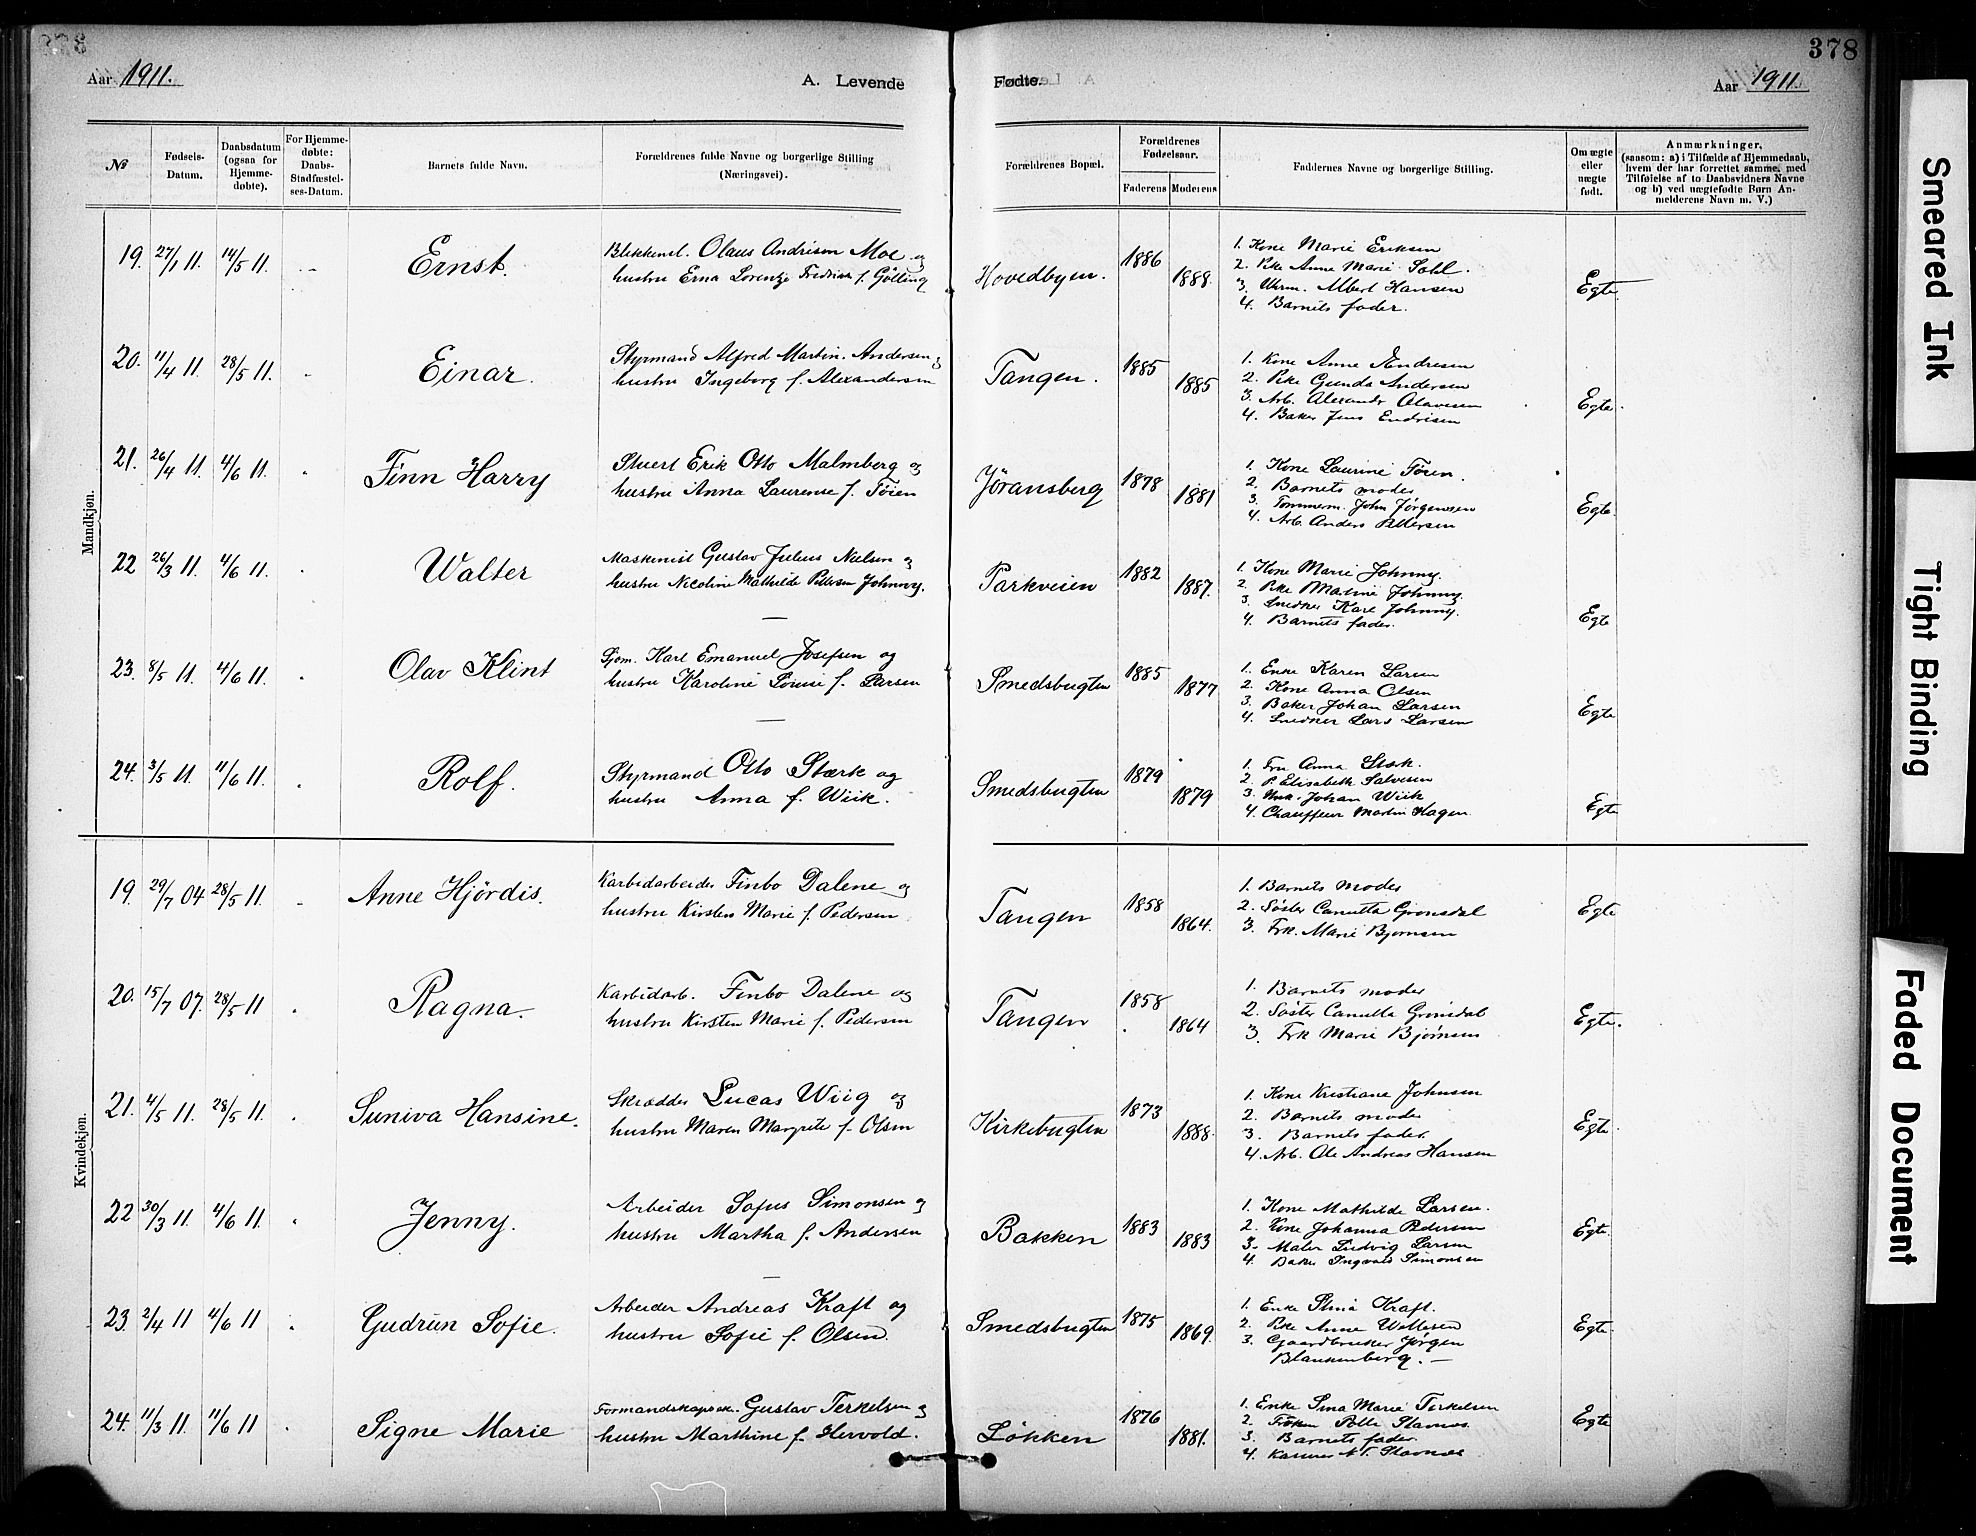 378
Aar 1911. A. Levende Fødte. Aar 1911.
№
Fødsels-Datum.
Daabsdatum (ogsaa for Hjemme-døbte).
For Hjemme-døbte: Daabs-Stadfæstel-ses-Datum.
Barnets fulde Navn.
Forældrenes fulde Navne og borgerlige Stilling
(Næringsvei).
Forældrenes Bopæl.
Forældrenes Fødselsaar.
Faderens Moderens
Faddernes Navne og borgerlige Stilling.
Om ægte eller uægte født.
Anmærkninger,
(saasom: a) i Tilfælde af Hjemmedaab,
hvem der har forrettet samme, med
Tilføielse af to Daabsvidners Navne
og b) ved uægtefødte Børn An-
melderens Navn m. V.)
Mandkjøn.
19. 27/1 11. 14/5 11. Ernst.
Blikkensl. Olaus Andrisen Moe og
hustru Erna Lorentze Fredrikk f. Gölling
Hovedbyen. 1886 1888.
1. Kone Marie Eriksen
2. Pike Anne Marie Sohl.
3. Albert Hansen
4. Barnets fader.
Egte
20. 11/4 11. 28/5 11. Einar.
Styrmand Alfred Martin Andersen og
hustru Ingeborg f. Alexandersen
Tangen. 1885 1885
1. Kone Anne Andresen
2. Pike Gunda Andersen
3. Arb. Alexandr Olavesen
4. Baker Jens Endrisen
Egte.
21. 26/4 11. 4/6 11. Finn Harry
Stuert Erik Otto Malmberg og
hustru Anna Laurense f. Tösen
Jöransberg 1878 1881
1. Kone Laurine Tösen.
2. Barnets moder
3. Tømmerm. John Jörgensen
4. Arb. Anders Pettersen
Egte.
22 26/3 11. 4/6 11. Walter
Maskinist Gustav Julius Nielsen og
hustru Nicoline Mathilde Petersen Johnny.
Parkveien 1882 1887.
1. Kone Marie Johnny.
2. Pike Martine Johnny.
3. Snedker Karl Johnny.
4. Barnets fader.
Egte
23. 8/5 11. 4/6 11. Olav Klint
Sjøm. Karl Emanuel Josefsen og
hustru Karoline Lovise f. Larsen
Smedsbugten 1885 1877
1. Enke Karen Larsen
2. Kone Anna Olsen
3. Baker Johan Larsen
4. Snedker Lars Larsen
Egte
24. 3/5 11. 11/6 11. Rolf.
Styrmand Otto Stærk og
hustru Anna f. Wiik.
Smedsbugten 1879 1879
1. Fru Anna Stærk.
2. P. Elisabeth Salvesen
3. Johan Wiik
4. Chauffeur Martin Hagen.
Egte
Kvindekjøn.
19. 29/7 04 28/5 11. Anne Hjördis.
Karbidarbeider Finbo Dalene og
hustru Kirsten Marie f. Pedersen
Tangen 1858 1864.
1. Barnets moder
2. Søster Camitta Gronsdal
3. Frk. Marie Bjornsen
Egte
20. 15/7 07. 28/5 11 Ragna.
Karbidarb. Finbo Dalene og
hustru Kirsten Marie f. Pedersen
Tangen 1858 1864
1. Barnets moder
2. Søster Camitta Gronsdal
3. Frk Marie Bjørnsen
Egte.
21. 4/5 11. 28/5 11. Suniva Hansine.
Skrædder Lucas Wiig og
hustru Maren Margrete f. Olsen
Kirkebugten 1873 1888.
1. Kone Kristiane Johnsen
2. Barnets moder
3. Barnets fader.
4. Arb. Ole Andreas Hansen
Egte
22 30/3 11. 4/6 11. Jenny.
Arbeider Sofus Simonsen og
hustru Martha f. Andersen
Bakken 1883 1883
1. Kone Mathilde Larsen.
2. Kone Johanna Pedersen
3. Maler Ludvig Larsen
4. Baker Ingvald Simonsen
Egte.
23. 2/4 11 4/6 11 Gudrun Sofie.
Arbeider Andreas Kraft og
hustru Sofie f. Olsen.
Smedsbugten 1875 1869.
1. Enke Stina Kraft.
2. Pike Anne Wattesen
3. Gaardbruker Jørgen
Blankenberg. —
Egte.
24. 11/3 11. 11/6 11 Signe Marie
Formandskapssek. Gustav Terkelsen og
hustru Marthine f. Hervold.
Løkken 1876 1881.
1. Enke Sina Marie Terkelsen
2. Frøken Stavnes
3. Barnets fader.
4. Kasserer N. T. Stavnes
Egte
Smeared Ink
Tight Binding
Faded Document